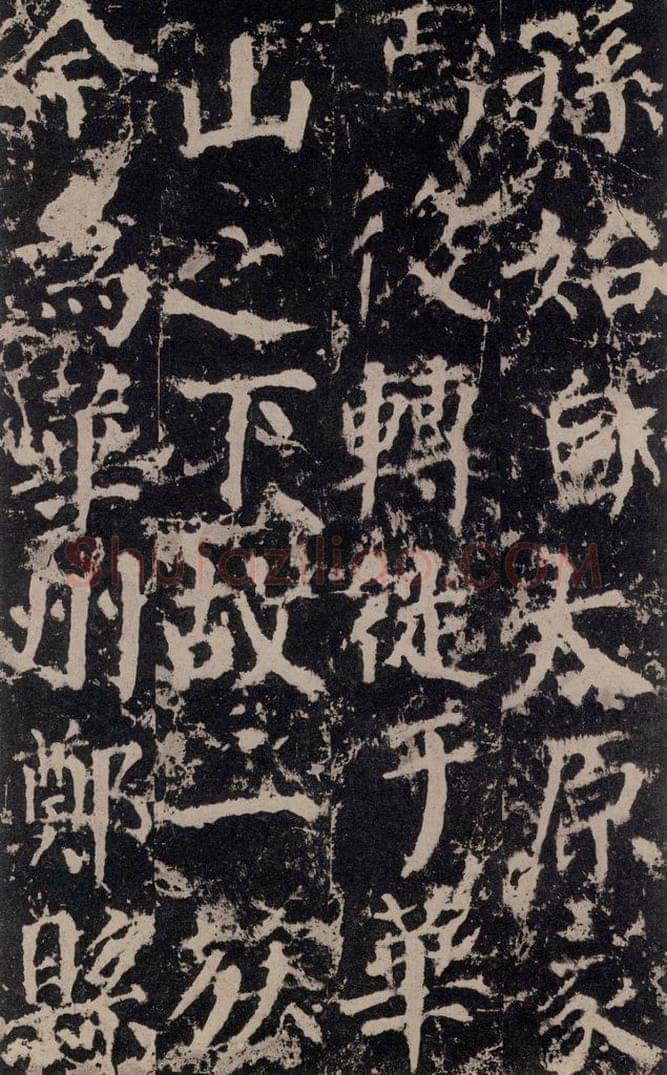 孫始自太原家
焉後轉徙于華
山之下故一
今為華州鄭縣
Shufaziliao.COM